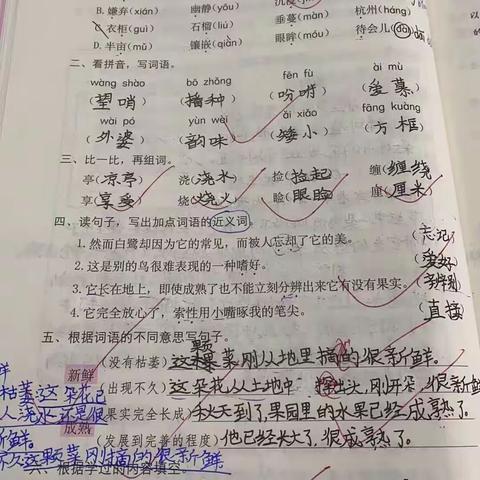 B. 嫌弃(xián) 幽静(yōu)
C. 衣柜(guì) 石榴(liú) 垂蔓(màn) 杭州(háng)
D. 半亩(mǔ) 镶嵌(qiàn) 眼眸(móu) 待会儿(dāi)
二、看拼音，写词语。
wàng shào bō zhǒng fēn fù ài mù
(望哨) (播种) (吩咐) (爱慕)
wài pó yùn wèi ǎi xiǎo fāng kuàng
(外婆) (韵味) (矮小) (方框)
三、比一比，再组词。
亭(凉亭) 浇(浇水) 捡(捡起) 缠(缠绕)
享(享受) 烧(烧火) 睑(眼睑) (厘米)
四、读句子，写出加点词语的近义词。
1. 然而白鹭却因为它的常见，而被人忘却了它的美。 (忘记)
2. 这是别的鸟很难表现的一种嗜好。 (爱好)
3. 它长在地上，即使成熟了也不能立刻分辨出来它有没有果实。 (辨别)
4. 它完全放心了，索性用小嘴啄我的笔尖。 (直接)
五、根据词语的不同意思写句子。
新鲜 (没有枯萎) 这菜刚从地里摘的很新鲜。
(出现不久) 这朵花从土地中 出土,刚开朵,很新鲜
成熟 (果实完全长成) 秋天到了,果园里的水果已经成熟了。
(发展到完善的程度) 他已经长大了,很成熟了。
枯萎:这朵花已
人浇水还是很
新鲜。
不久这颗菜刚摘的很新鲜
六、根据学过的内容填空。